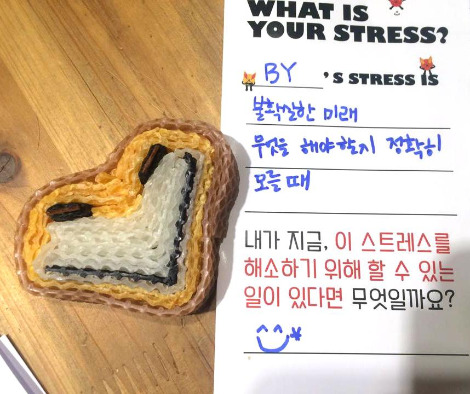 WHAT IS
YOUR STRESS?
BY 'S STRESS IS
불확실한 미래
무엇을 해야할지 정확히
모를 때
내가 지금, 이 스트레스를
해소하기 위해 할 수 있는
일이 있다면 무엇일까요?